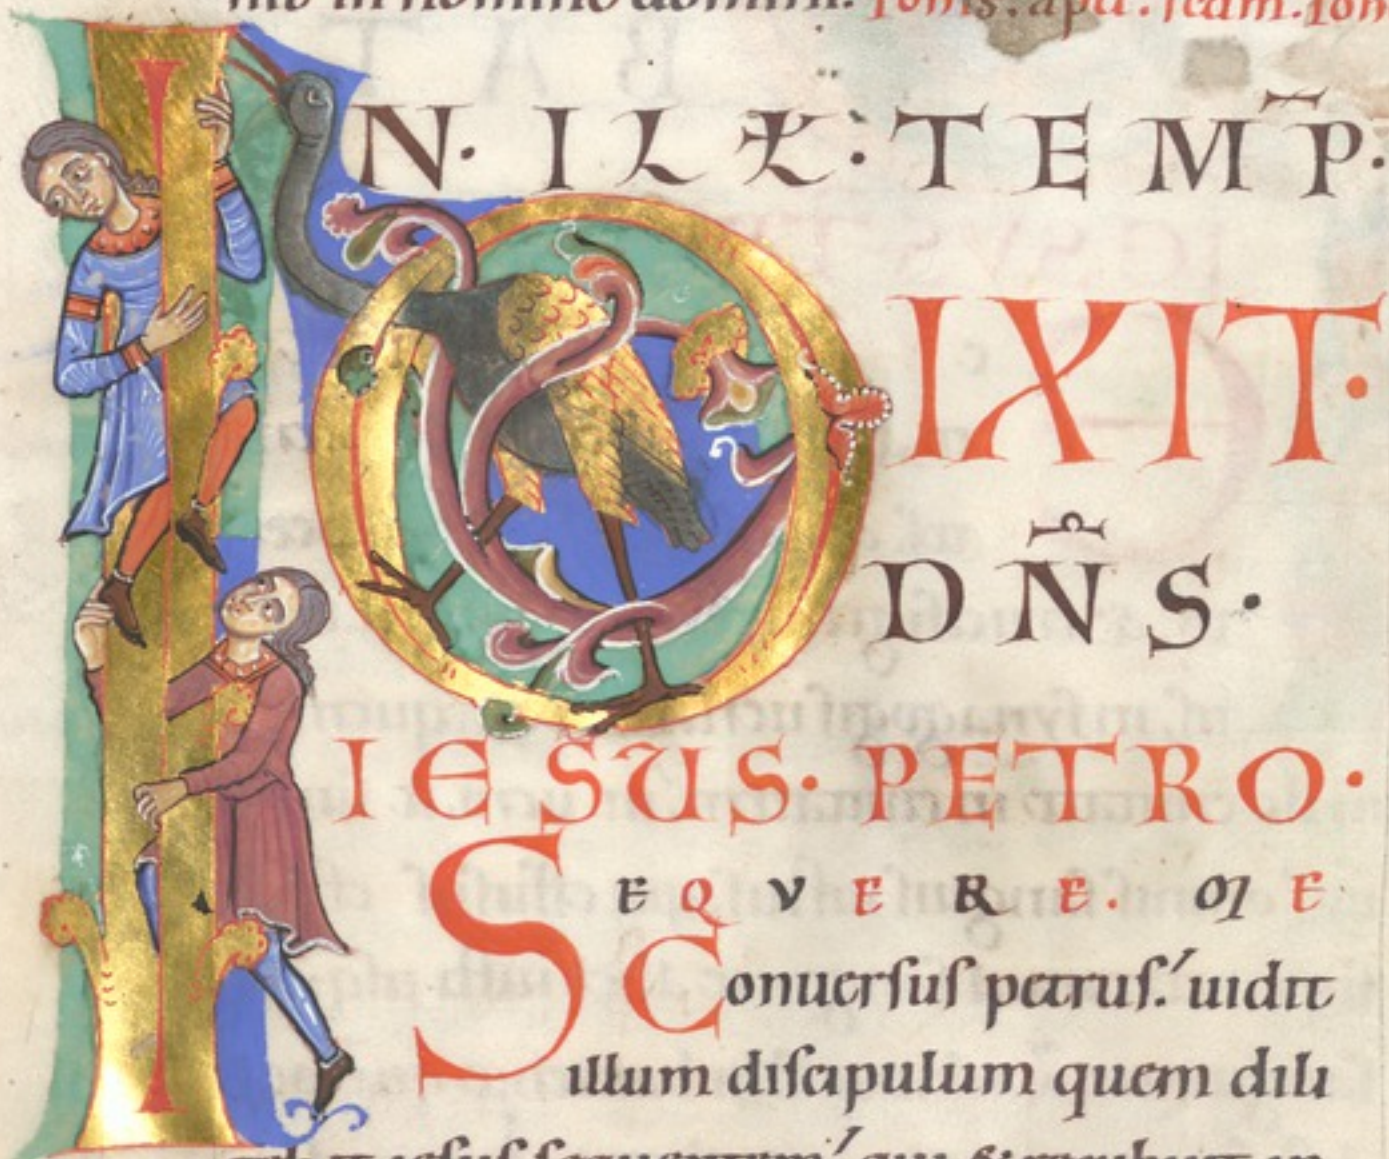 in nomine domini. Iohis. apli. scdm. Ioh
IN· ILL̵· TEMP̄·
DIXIT·
DN̄S·
IESUS· PETRO·
SEQVERE· ME
Conuerſuſ petruſ. uidit
illum diſcipulum quem dili